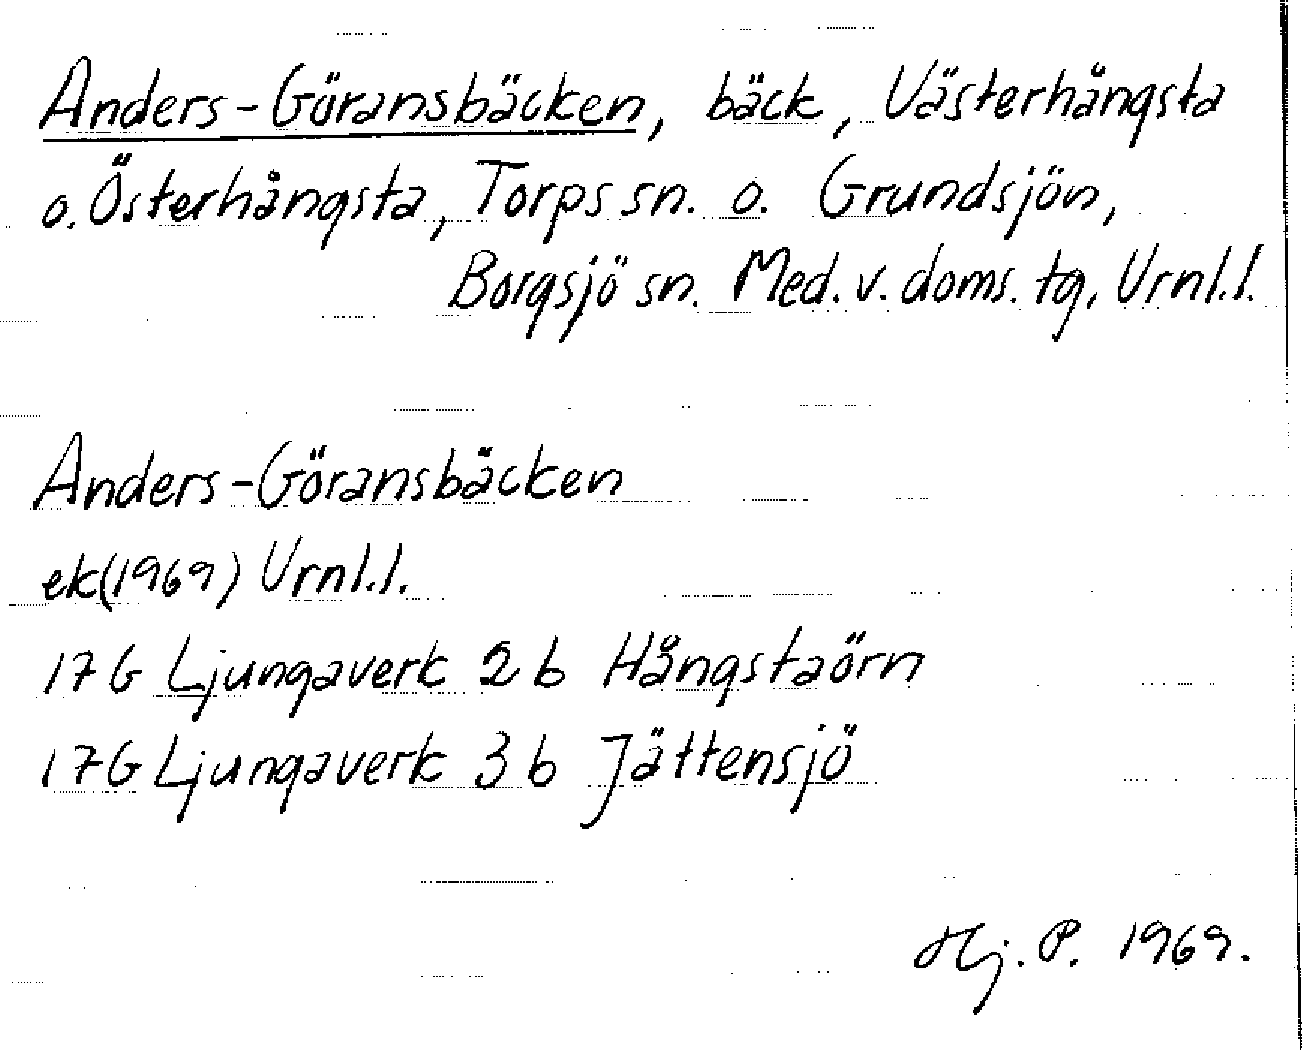 Anders-Göransbäcken, bäck, Västerhångsta
o. Österhångsta, Torps sn. o. Grundsjön,
Borgsjö sn. Med. v. doms. tg, Vrnl.l.
Anders-Göransbäcken
ek(1969) Vrnl.l.
17G Ljungaverk 2b Hångstaörn
17G Ljungaverk 3b Jättensjö
Hj. P. 1969.